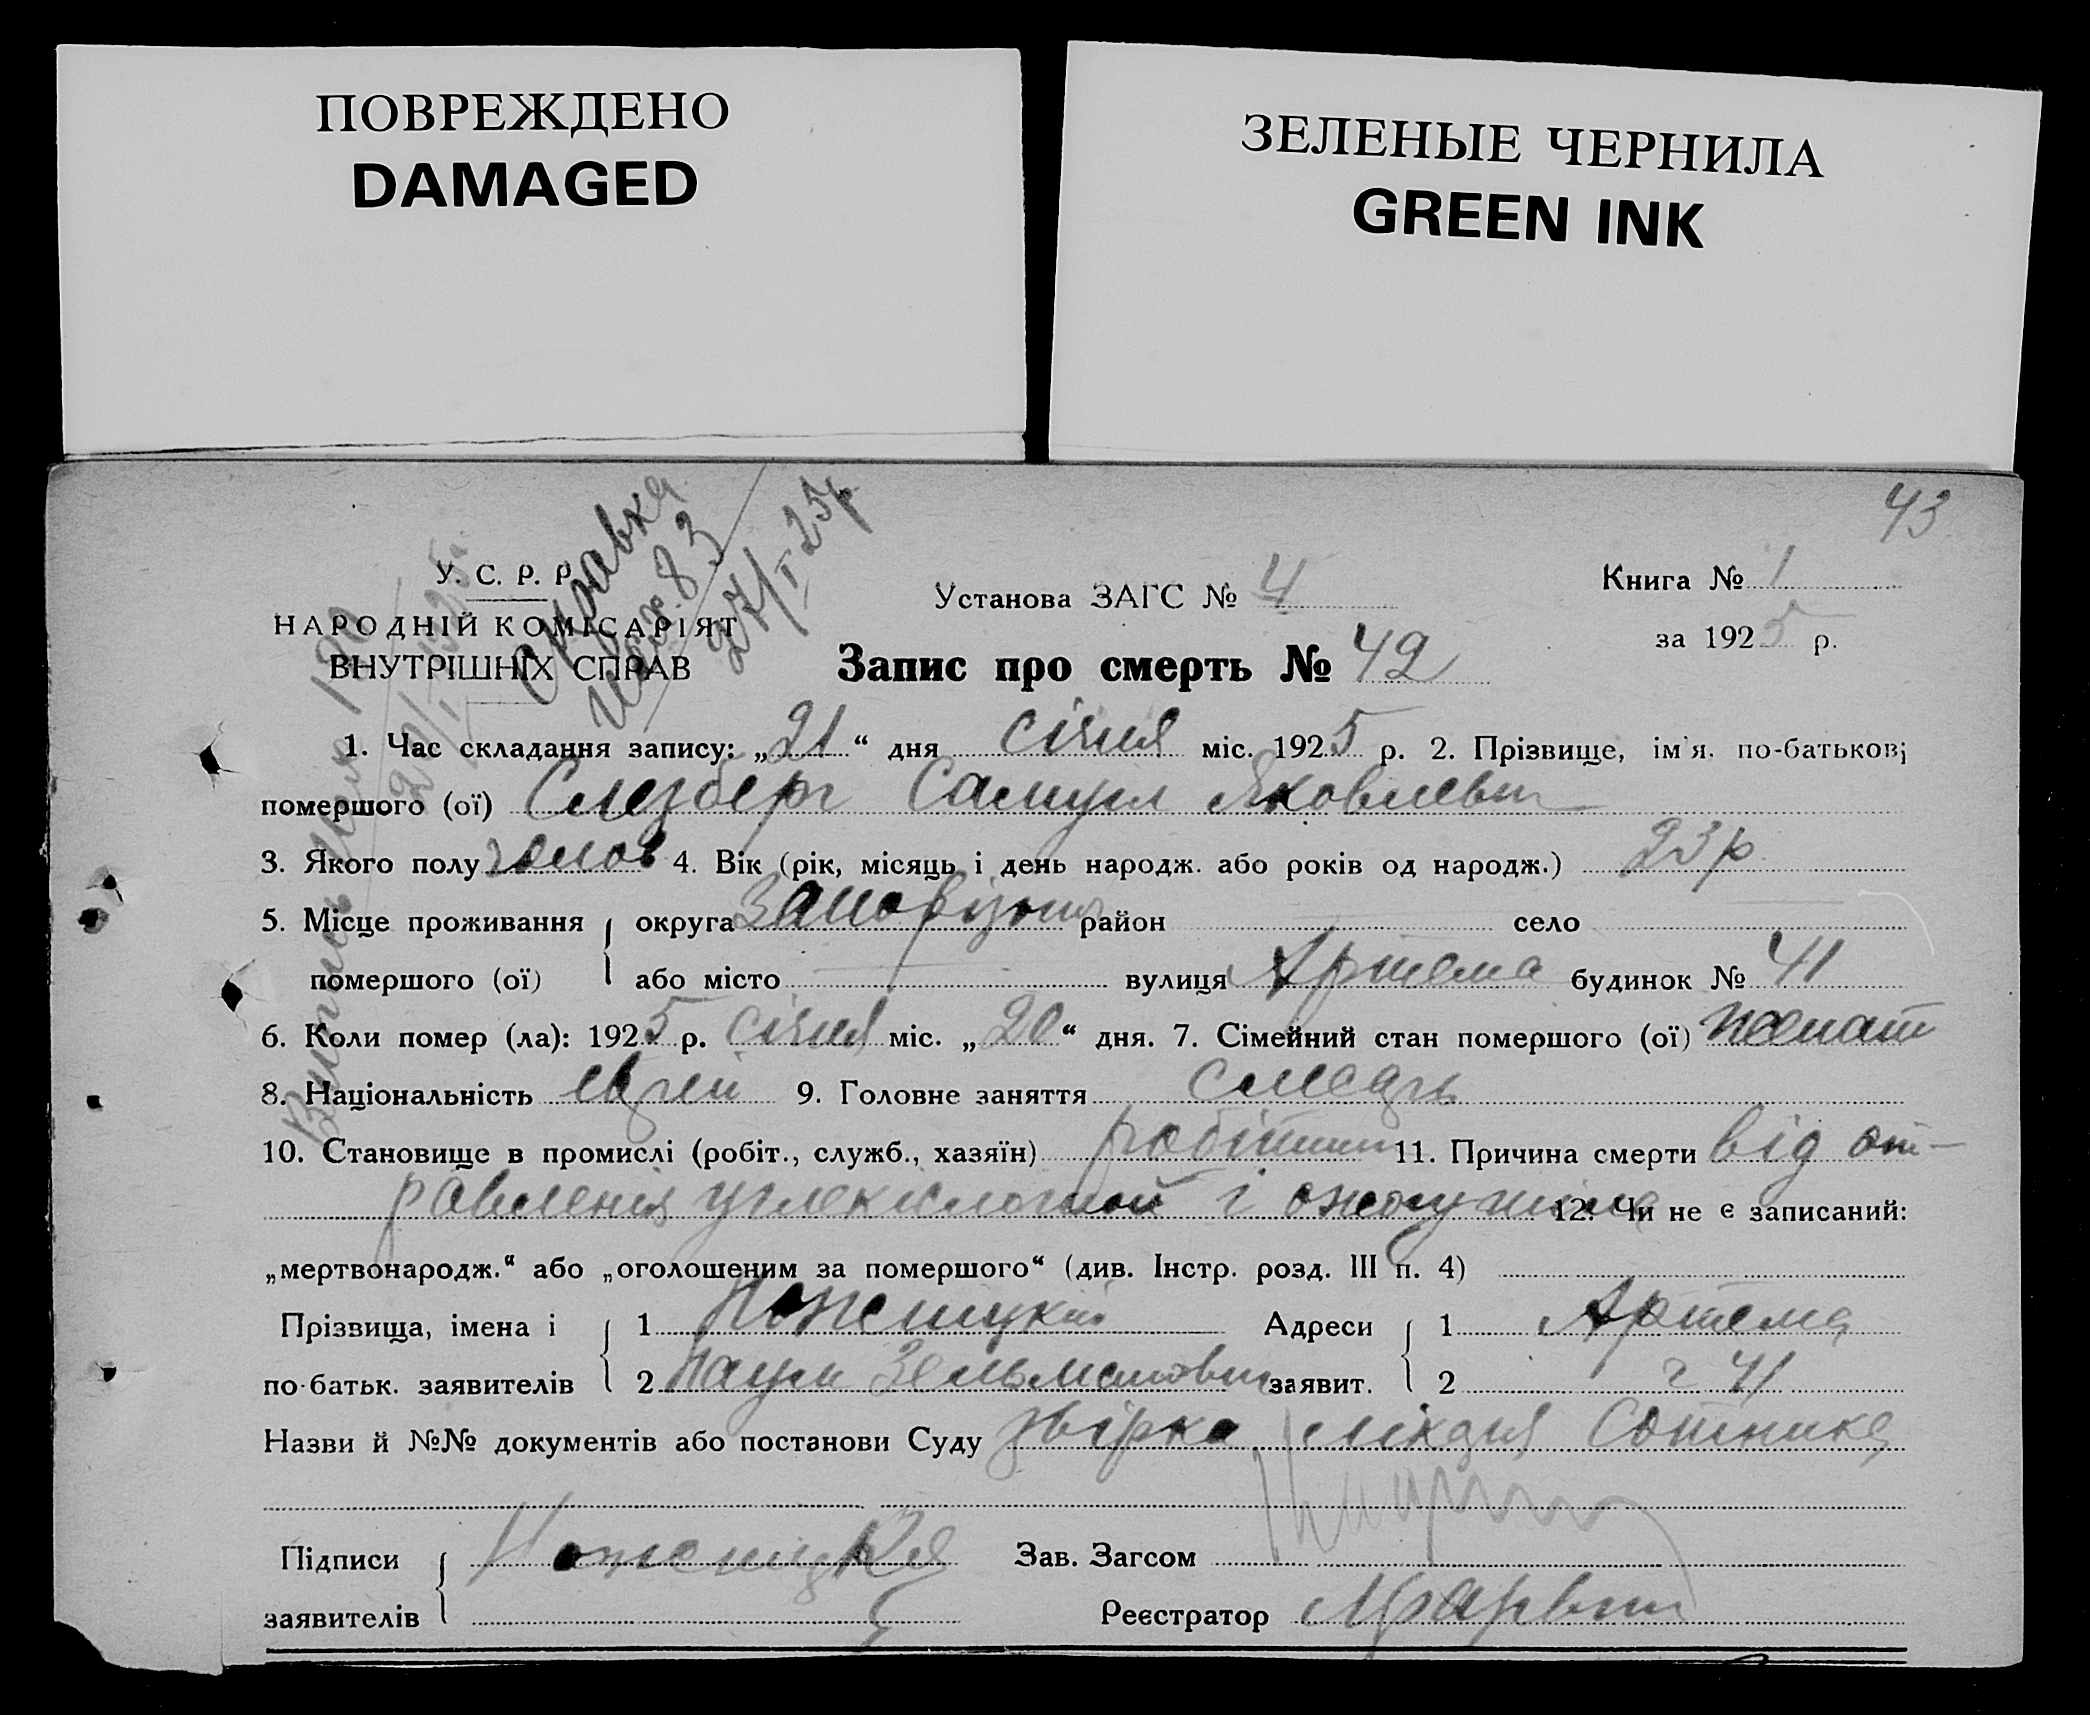 ПОВРЕЖДЕНО
DAMAGED
ЗЕЛЕНЫЕ ЧЕРНИЛА
GREEN INK
43
Справка
83
27/I 25р.
У. С. Р. Р.
НАРОДНІЙ КОМІСАРІЯТ
ВНУТРІШНІХ СПРАВ
Установа ЗАГС № 4
Книга № 1
за 1925 р.
Запис про смерть № 42
1. Час складання запису: „21“ дня січня міс. 1925 р. 2. Прізвище, ім'я, по-батькові
помершого (ої) Слезберг Самуїл Яковлевич
3. Якого полу чолов 4. Вік (рік, місяць і день народж. або років од народж.) 23 р
5. Місце проживання округа район село
помершого (ої) або місто вулиця Артема будинок № 41
6. Коли помер (ла): 1925 р. січня міс. „20“ дня. 7. Сімейний стан помершого (ої) женат
8. Національність еврей 9. Головне заняття
10. Становище в промислі (робіт., служб., хазяїн) робітник 11. Причина смерти від от-
равления углекислотой і 12. Чи не є записаний:
„мертвонародж.“ або „оголошеним за помершого“ (див. Інстр. розд. III п. 4)
Прізвища, імена і 1 Ножницкий Адреси 1 Артема
по-батьк. заявителів 2 Наум Зельманович заявит. 2 ч 41
Назви й №№ документів або постанови Суду Сотника
Підписи Зав. Загсом
заявителів Реєстратор